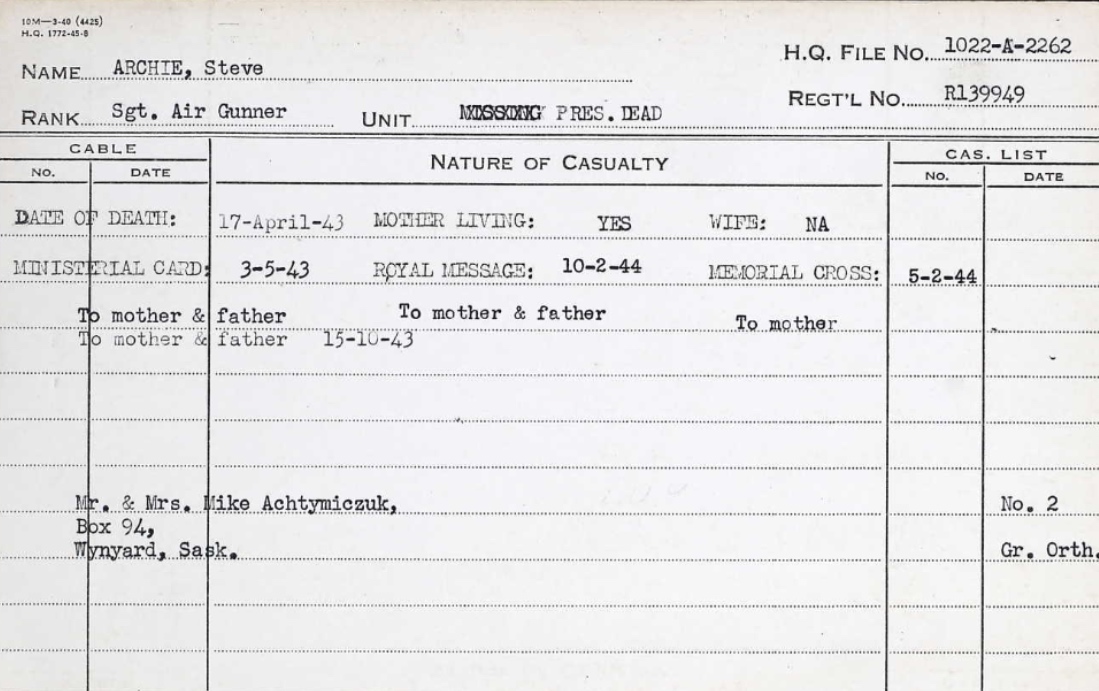 10M—3-40 (4425)
H.Q. 1772-45-8
H.Q. FILE NO. 1022-A-2262
NAME ARCHIE, Steve
REGT'L NO. R139949
RANK Sgt. Air Gunner UNIT MISSING PRES. DEAD
CABLE NATURE OF CASUALTY CAS. LIST
NO. DATE NO. DATE
DATE OF DEATH: 17-April-43 MOTHER LIVING: YES WIFE: NA
MINISTERIAL CARD: 3-5-43 ROYAL MESSAGE: 10-2-44 MEMORIAL CROSS: 5-2-44
To mother & father To mother & father To mother
To mother & father 15-10-43
Mr. & Mrs. Mike Achtymiczuk, No. 2
Box 94,
Wynyard, Sask. Gr. Orth.